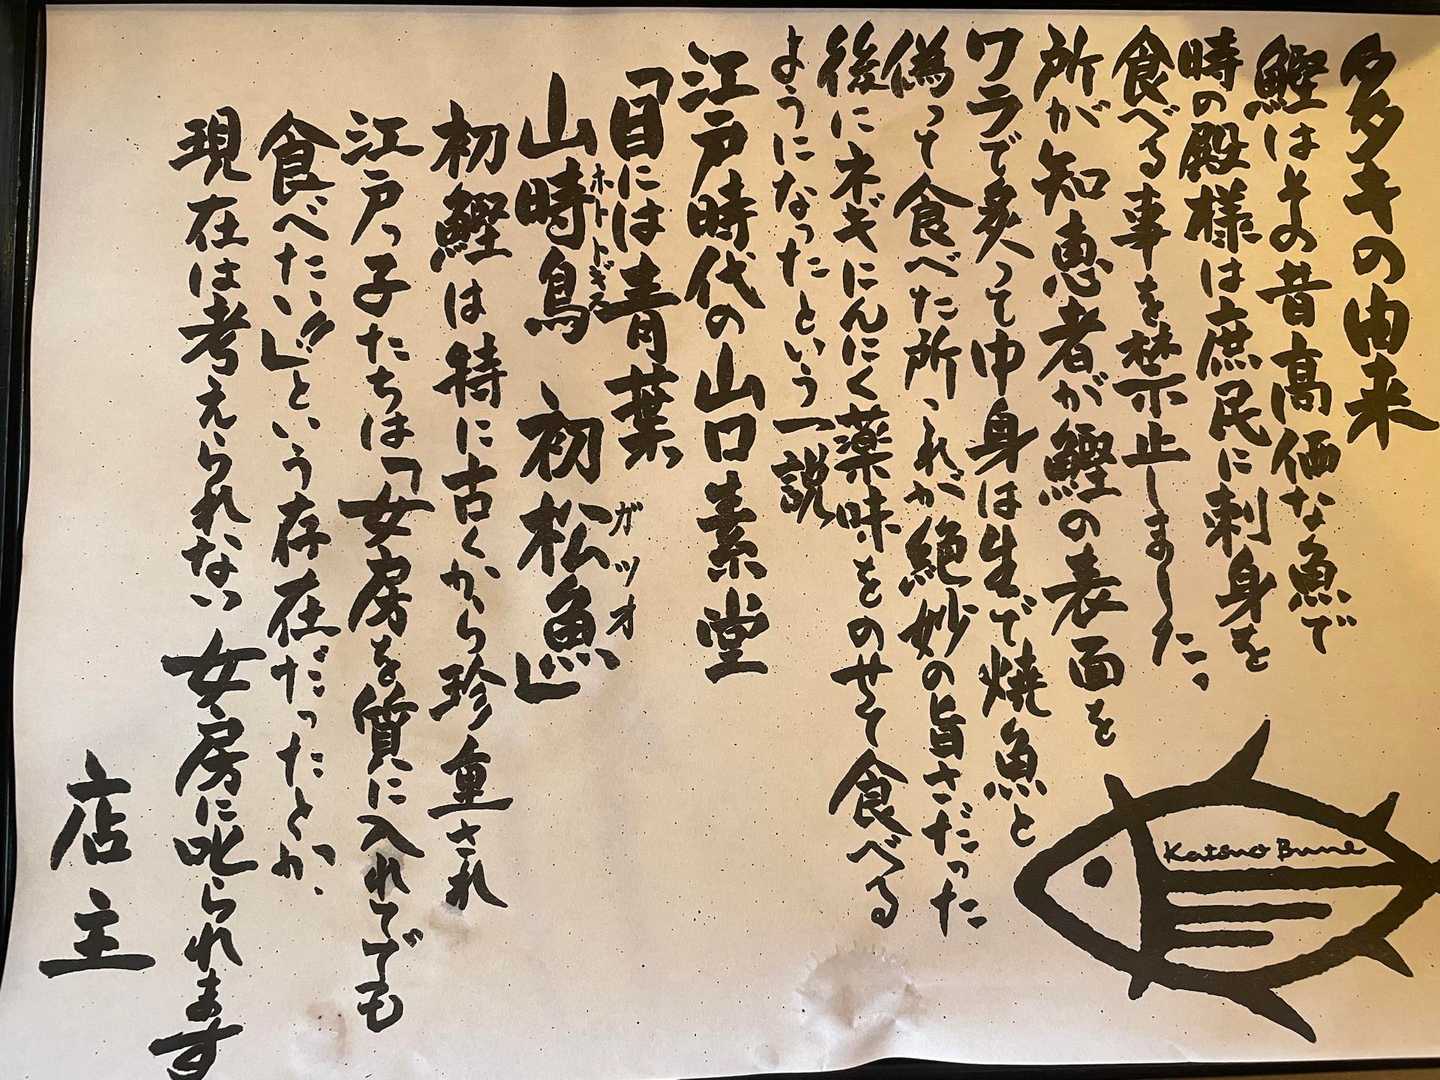 多タキの由来
鰹はその昔高価な魚で
時の殿様は庶民に刺身を
食べる事を禁止しました。
所が知恵者が鰹の表面を
ワラで炙って中身は生で焼魚と
偽って食べた所これが絶妙の旨さだった
後にネギにんにく薬味をのせて食べる
ようになったという一説
江戸時代の山口素堂
「目には青葉
山時鳥 初松魚」
ホトトギス
ガツオ
初鰹は特に古くから珍重され
江戸っ子たちは「女房を質に入れてでも
食べたい!!」という存在だったとか、
現在は考えられない女房に叱られます
店主
Katsuo Bune